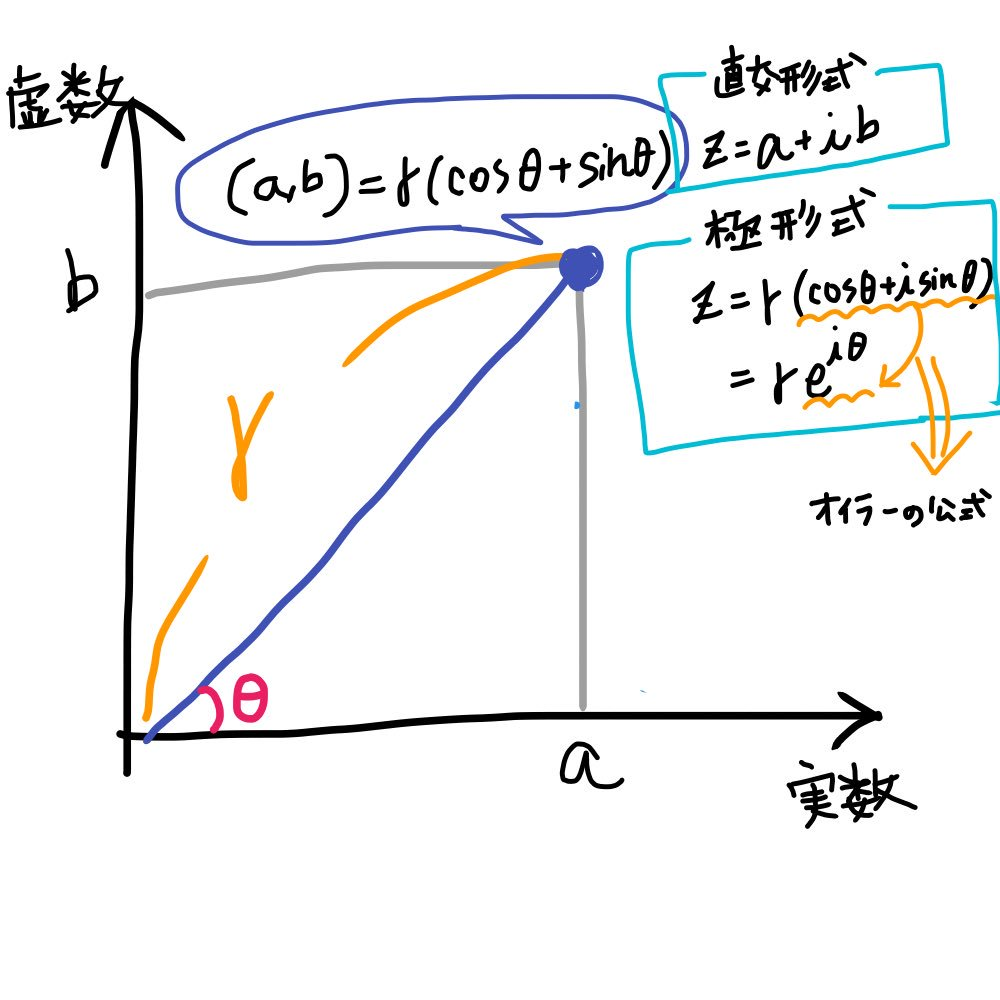 虚数
(a,b)=r(cosθ+sinθ)
直交形式
z=a+ib
極形式
z=r(cosθ+isinθ)
=re^{iθ}
オイラーの公式
b
r
θ
a
実数